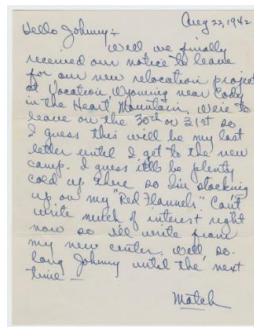 Aug 22, 1942
Hello Johnny:-
Well we finally
received our notice to leave
for our new relocation project
at Vocation Wyoming near Cody
in the Heart Mountain. We're to
leave on the 30th or 31st so
I guess this will be my last
letter until I get to the new
camp. I guess it'll be plenty
cold up there so I'm stocking
up on my "Red Flannels". Can't
write much of interest right
now so I'll write from
my new center. Well so
long Johnny until the next
time —